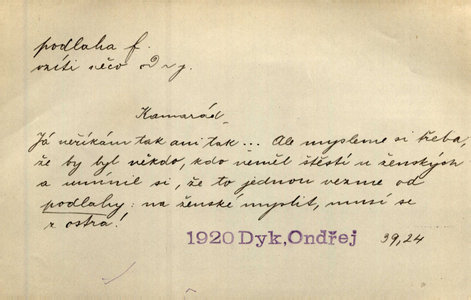 podlaha f.
vzíti něco od p.
Kamarád
Já neříkám tak ani tak ... Ale mysleme si třeba,
že by byl někdo, kdo neměl štěstí u ženských
a umínil si, že to jednou vezme od
podlahy: na ženské myslit, musí se
z ostra!
1920 Dyk, Ondřej 39,24